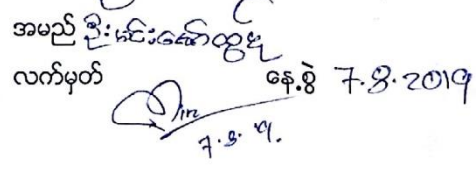 အမည် ဦးမင်းဇော်ထွဋ်
လက်မှတ် နေ့စွဲ 7.8.2019
7.8.19.